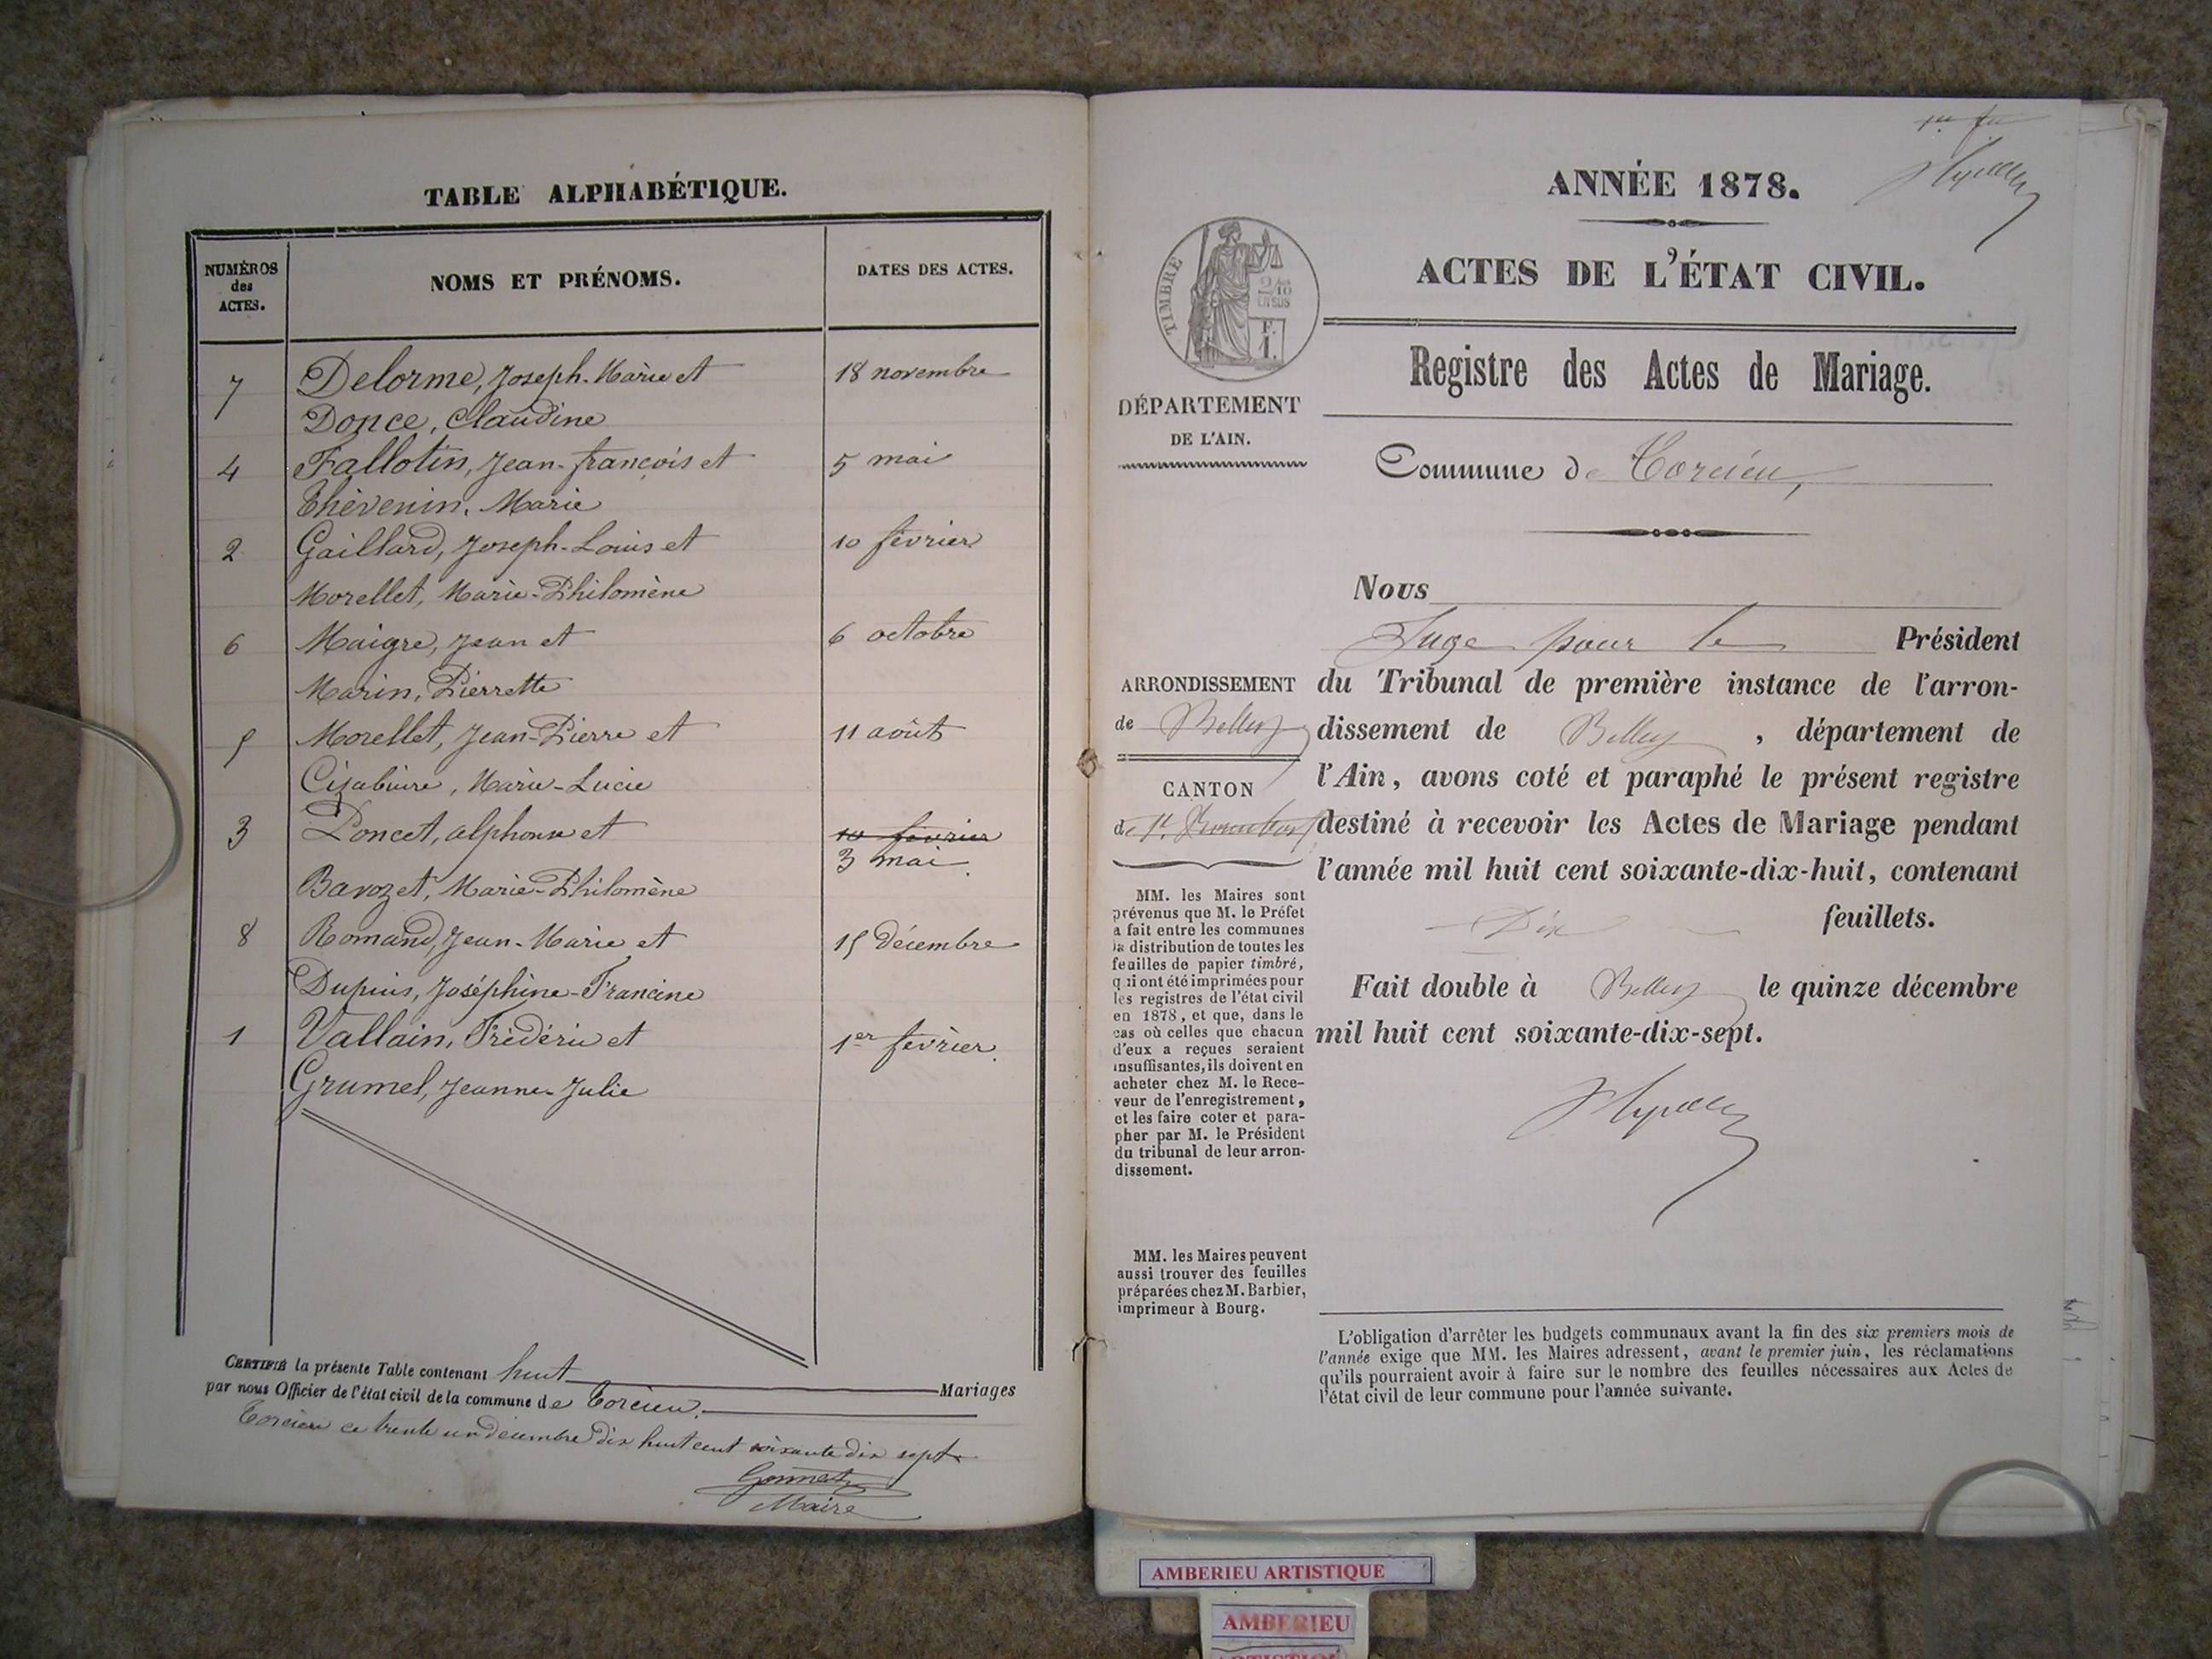 TABLE ALPHABÉTIQUE.
NUMÉROS
des
ACTES.
NOMS ET PRÉNOMS.
DATES DES ACTES.
7 Delorme, Joseph-Marie et 18 novembre
Donce, Claudine
4 Fallotin, Jean-françois et 5 mai
Thévenin, Marie
2 Gaillard, Joseph-Louis et 10 février
Morellet, Marie-Philomène
6 Maigre, Jean et 6 octobre
Marin, Pierrette
5 Morellet, Jean-Pierre et 11 août
Marie-Lucie
3 Poncet, alphonse et 10 février
3 mai
Bavozet, Marie-Philomène
8 Romand, Jean-Marie et 15 décembre
Dupuis, Joséphine-Francine
1 Vallain, Frédéric et 1er février
Grumel, Jeanne-Julie
CERTIFIÉ la présente Table contenant huit Mariages
par nous Officier de l'état civil de la commune de Torcieu.
Torcieu ce trente un décembre dix huit cent soixante dix sept
Gonnet
Maire
ANNÉE 1878.
ACTES DE L'ÉTAT CIVIL.
TIMBRE
2/10
EN SUS
F.
1.
Registre des Actes de Mariage.
DÉPARTEMENT
DE L'AIN.
Commune de Torcieu,
Nous
Juge pour le Président
ARRONDISSEMENT
de Belley
CANTON
de St Rambert
du Tribunal de première instance de l'arron-
dissement de Belley, département de
l'Ain, avons coté et paraphé le présent registre
destiné à recevoir les Actes de Mariage pendant
l'année mil huit cent soixante-dix-huit, contenant
Dix feuillets.
Fait double à Belley le quinze décembre
mil huit cent soixante-dix-sept.
MM. les Maires sont
prévenus que M. le Préfet
a fait entre les communes
la distribution de toutes les
feuilles de papier timbré,
qui ont été imprimées pour
les registres de l'état civil
en 1878, et que, dans le
cas où celles que chacun
d'eux a reçues seraient
insuffisantes, ils doivent en
acheter chez M. le Rece-
veur de l'enregistrement,
et les faire coter et para-
pher par M. le Président
du tribunal de leur arron-
dissement.
MM. les Maires peuvent
aussi trouver des feuilles
préparées chez M. Barbier,
imprimeur à Bourg.
L'obligation d'arrêter les budgets communaux avant la fin des six premiers mois de
l'année exige que MM. les Maires adressent, avant le premier juin, les réclamations
qu'ils pourraient avoir à faire sur le nombre des feuilles nécessaires aux Actes de
l'état civil de leur commune pour l'année suivante.
AMBERIEU ARTISTIQUE
AMBERIEU
ARTISTIQUE